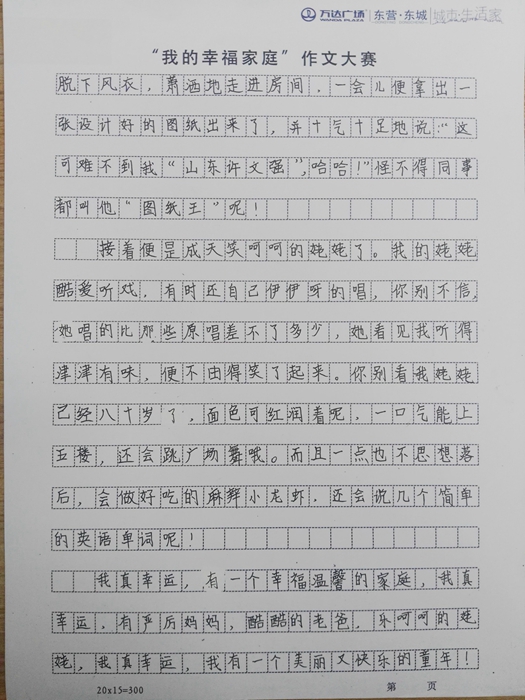 万达广场 WANDA PLAZA 东营·东城 城市·生活家
“我的幸福家庭”作文大赛
脱下风衣，萧洒地走进房间，一会儿便拿出一
张设计好的图纸出来了，并十气十足地说：“这
可难不到我“山东许文强”，哈哈！”怪不得同事
都叫他“图纸王”呢！
接着便是成天笑呵呵的姥姥了。我的姥姥
酷爱听戏，有时还自己伊伊呀的唱，你别不信，
她唱的比那些原唱差不了多少，她看见我听得
津津有味，便不由得笑了起来。你别看我姥姥
已经八十岁了，面色可红润着呢，一口气能上
五楼，还会跳广场舞哦。而且一点也不思想落
后，会做好吃的麻辣小龙虾，还会说几个简单
的英语单词呢！
我真幸运，有一个幸福温馨的家庭，我真
幸运，有严厉妈妈，酷酷的老爸，乐呵呵的姥
姥，我真幸运，我有一个美丽又快乐的童年！
20x15=300 第 页